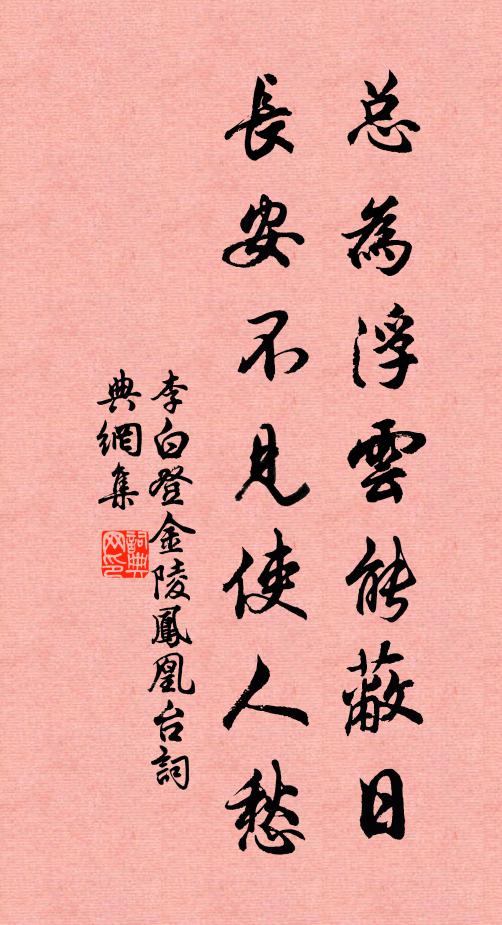 总為浮雲能蔽日
長安不見使人愁
李白登金陵鳳凰台詞
典網集
詞典
网印